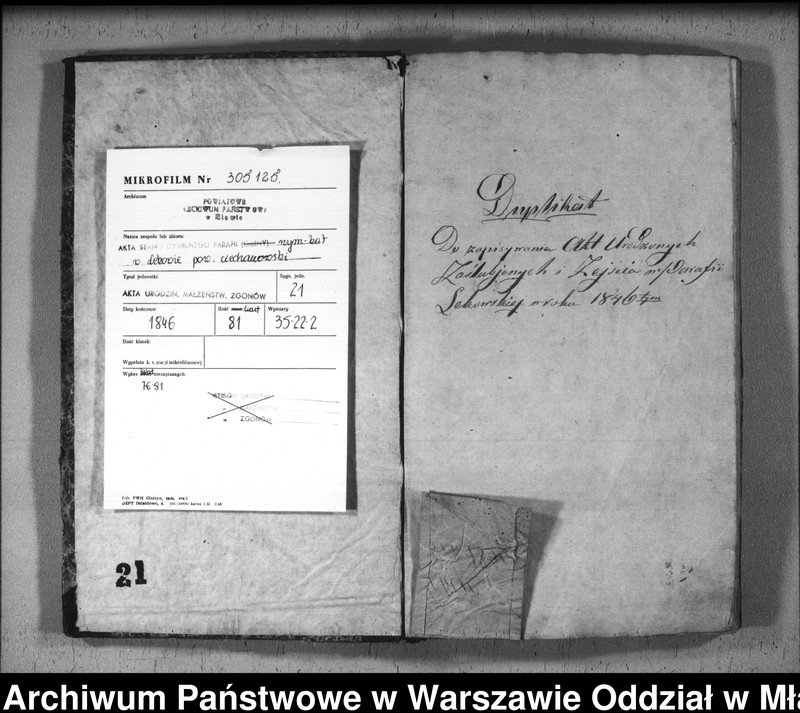 MIKROFILM Nr 305125.
Archiwum
POWIATOWE
ARCHIWUM PAŃSTWOWE
w Mławie
Nazwa zespołu lub zbioru:
AKTA STANU CYWILNEGO PARAFII (GMINY) rzym-kat
w Lekowie pow. ciechanowski
Tytuł jednostki:
AKTA URODZIN, MAŁŻEŃSTW, ZGONÓW
Sygn. jedn.
21
Daty końcowe:
1846
Ilość kart
81
Wymiary
35-22-2
Ilość klatek:
Wypełnia k. t. stacji mikrofilmowej
Wykaz kart niezapisanych:
76-81
URODZIN
" MAŁŻEŃSTW
" ZGONÓW
21
Duplikat
Do zapisywania Akt Urodzonych
Zaślubionych i Zejścia w Parafii
Lekowskiej w roku 1846 tym
Archiwum Państwowe w Warszawie Oddział w Mła